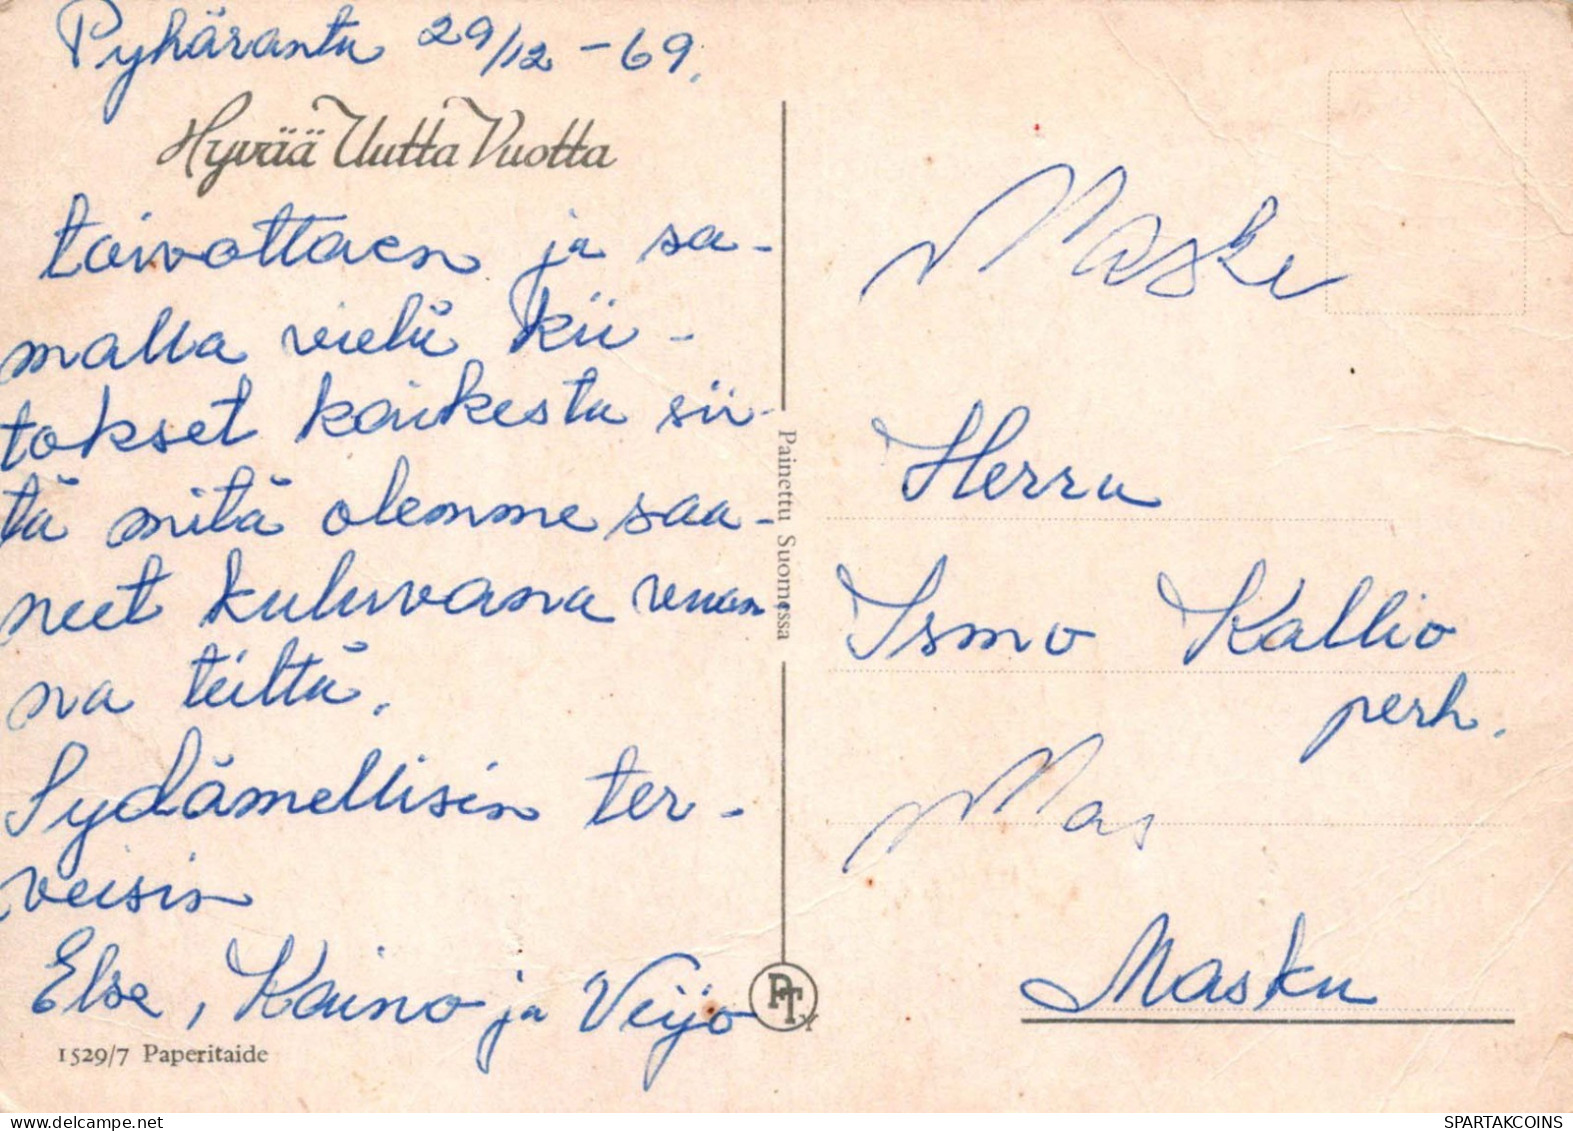 Pyhäranta 29/12 -69.
Hyvää Uutta Vuotta
toivottaen ja sa-
malla vielä kii-
tokset kaikesta sii-
tä mitä olemme saa-
neet kuluvana vuon
na teiltä.
Sydämellisin ter-
veisin
Else, Kaino ja Veijo
1529/7 Paperitaide
Painettu Suomessa
PT
Masku
Herra
Ismo Kallio
perh.
Mas
Masku
SPARTAKCOINS